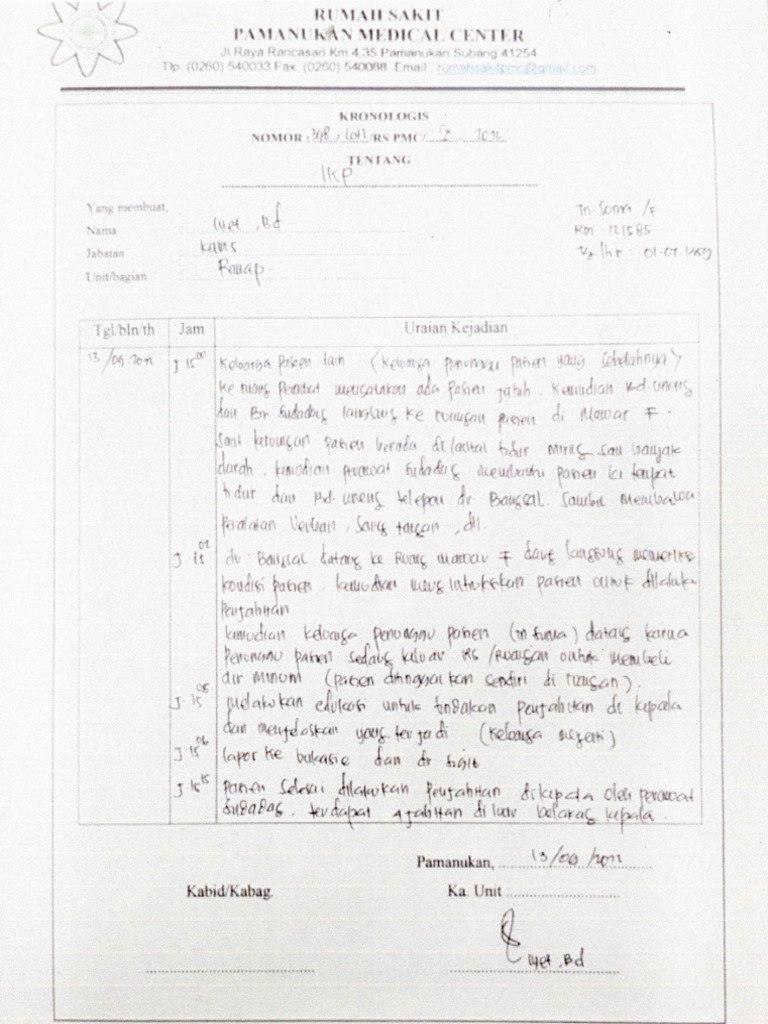 RUMAH SAKIT
PAMANUKAN MEDICAL CENTER
Jl Raya Rancasari Km 4,35 Pamanukan Subang 41254
Tlp. (0260) 540033 Fax. (0260) 540088 Email : rumahsakitpmc@gmail.com
KRONOLOGIS
NOMOR : /RS PMC/
TENTANG
IKP
Yang membuat,
Nama Iyet, Bd
Jabatan
Unit/bagian Ranap
/F
RM 121585
Tgl/bln/th Jam Uraian Kejadian
13/09 2022 J 15 00 Keluarga pasien lain (keluarga penunggu pasien yang sebelahnya)
ke ruang perawat mengatakan ada pasien jatuh. Kemudian Bd. uneng
dan Br langsung ke ruangan pasien di Mawar F.
saat keruangan pasien berada di lantai tidur miring dan banyak
darah, kemudian perawat membantu pasien ke tempat
tidur dan Bd. uneng telepon dr sambil membawa
peralatan verban, sarung tangan, dll.
J. 15 02 dr datang ke Ruang mawar F dan langsung memeriksa
kondisi pasien, kemudian pasien untuk dilakukan
penjahitan
kemudian keluarga penunggu pasien datang karena
penunggu pasien sedang keluar RS /Ruangan untuk membeli
air minum (pasien ditinggalkan sendiri di ruangan).
J. 15 05 melakukan edukasi untuk tindakan penjahitan di kepala
dan menjelaskan yang terjadi (keluarga mengerti)
J 15 06 lapor ke dan dr
J. 15 15 pasien selesai dilakukan penjahitan di kepala oleh perawat
terdapat jahitan di belakang kepala.
Pamanukan, 13/09/2022
Kabid/Kabag. Ka. Unit
Iyet, Bd